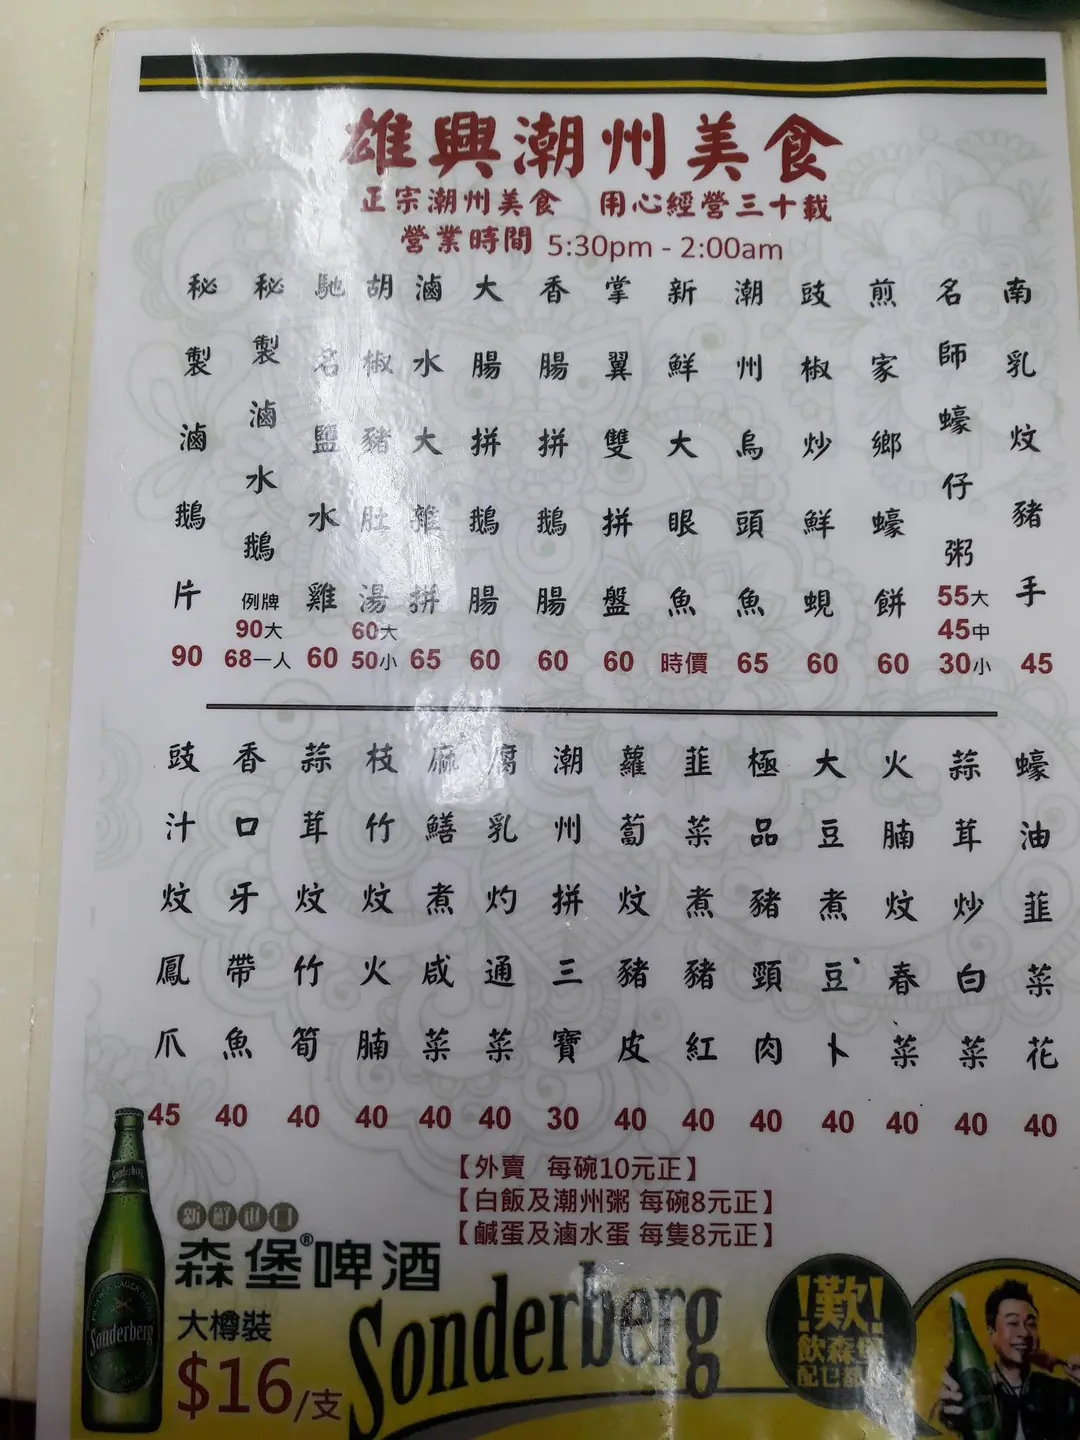 雄興潮州美食
正宗潮州美食 用心經營三十載
營業時間 5:30pm - 2:00am
南乳炆豬手 45
名師蠔仔粥 55大 45中 30小
煎家鄉蠔餅 60
豉椒炒鮮蜆 60
潮州烏頭魚 65
新鮮大眼魚 時價
掌翼雙拼盤 60
香腸拼鵝腸 60
大腸拼鵝腸 60
滷水大雜拼 65
胡椒豬肚湯 60大 50小
馳名鹽水雞 60
秘製滷水鵝 例牌 90大 68一人
秘製滷鵝片 90
蠔油韮菜花 40
蒜茸炒白菜 40
火腩炆春菜 40
大豆煮豆卜 40
極品豬頸肉 40
韮菜煮豬紅 40
蘿蔔炆豬皮 40
潮州拼三寶 30
腐乳灼通菜 40
麻鱔煮咸菜 40
枝竹炆火腩 40
蒜茸炆竹筍 40
香口牙帶魚 40
豉汁炆鳳爪 45
【外賣 每碗10元正】
【白飯及潮州粥 每碗8元正】
【鹹蛋及滷水蛋 每隻8元正】
新鮮進口
森堡®啤酒
大樽裝
$16/支
Sonderberg
Sonderberg
Sonderberg
!歎!
飲森堡